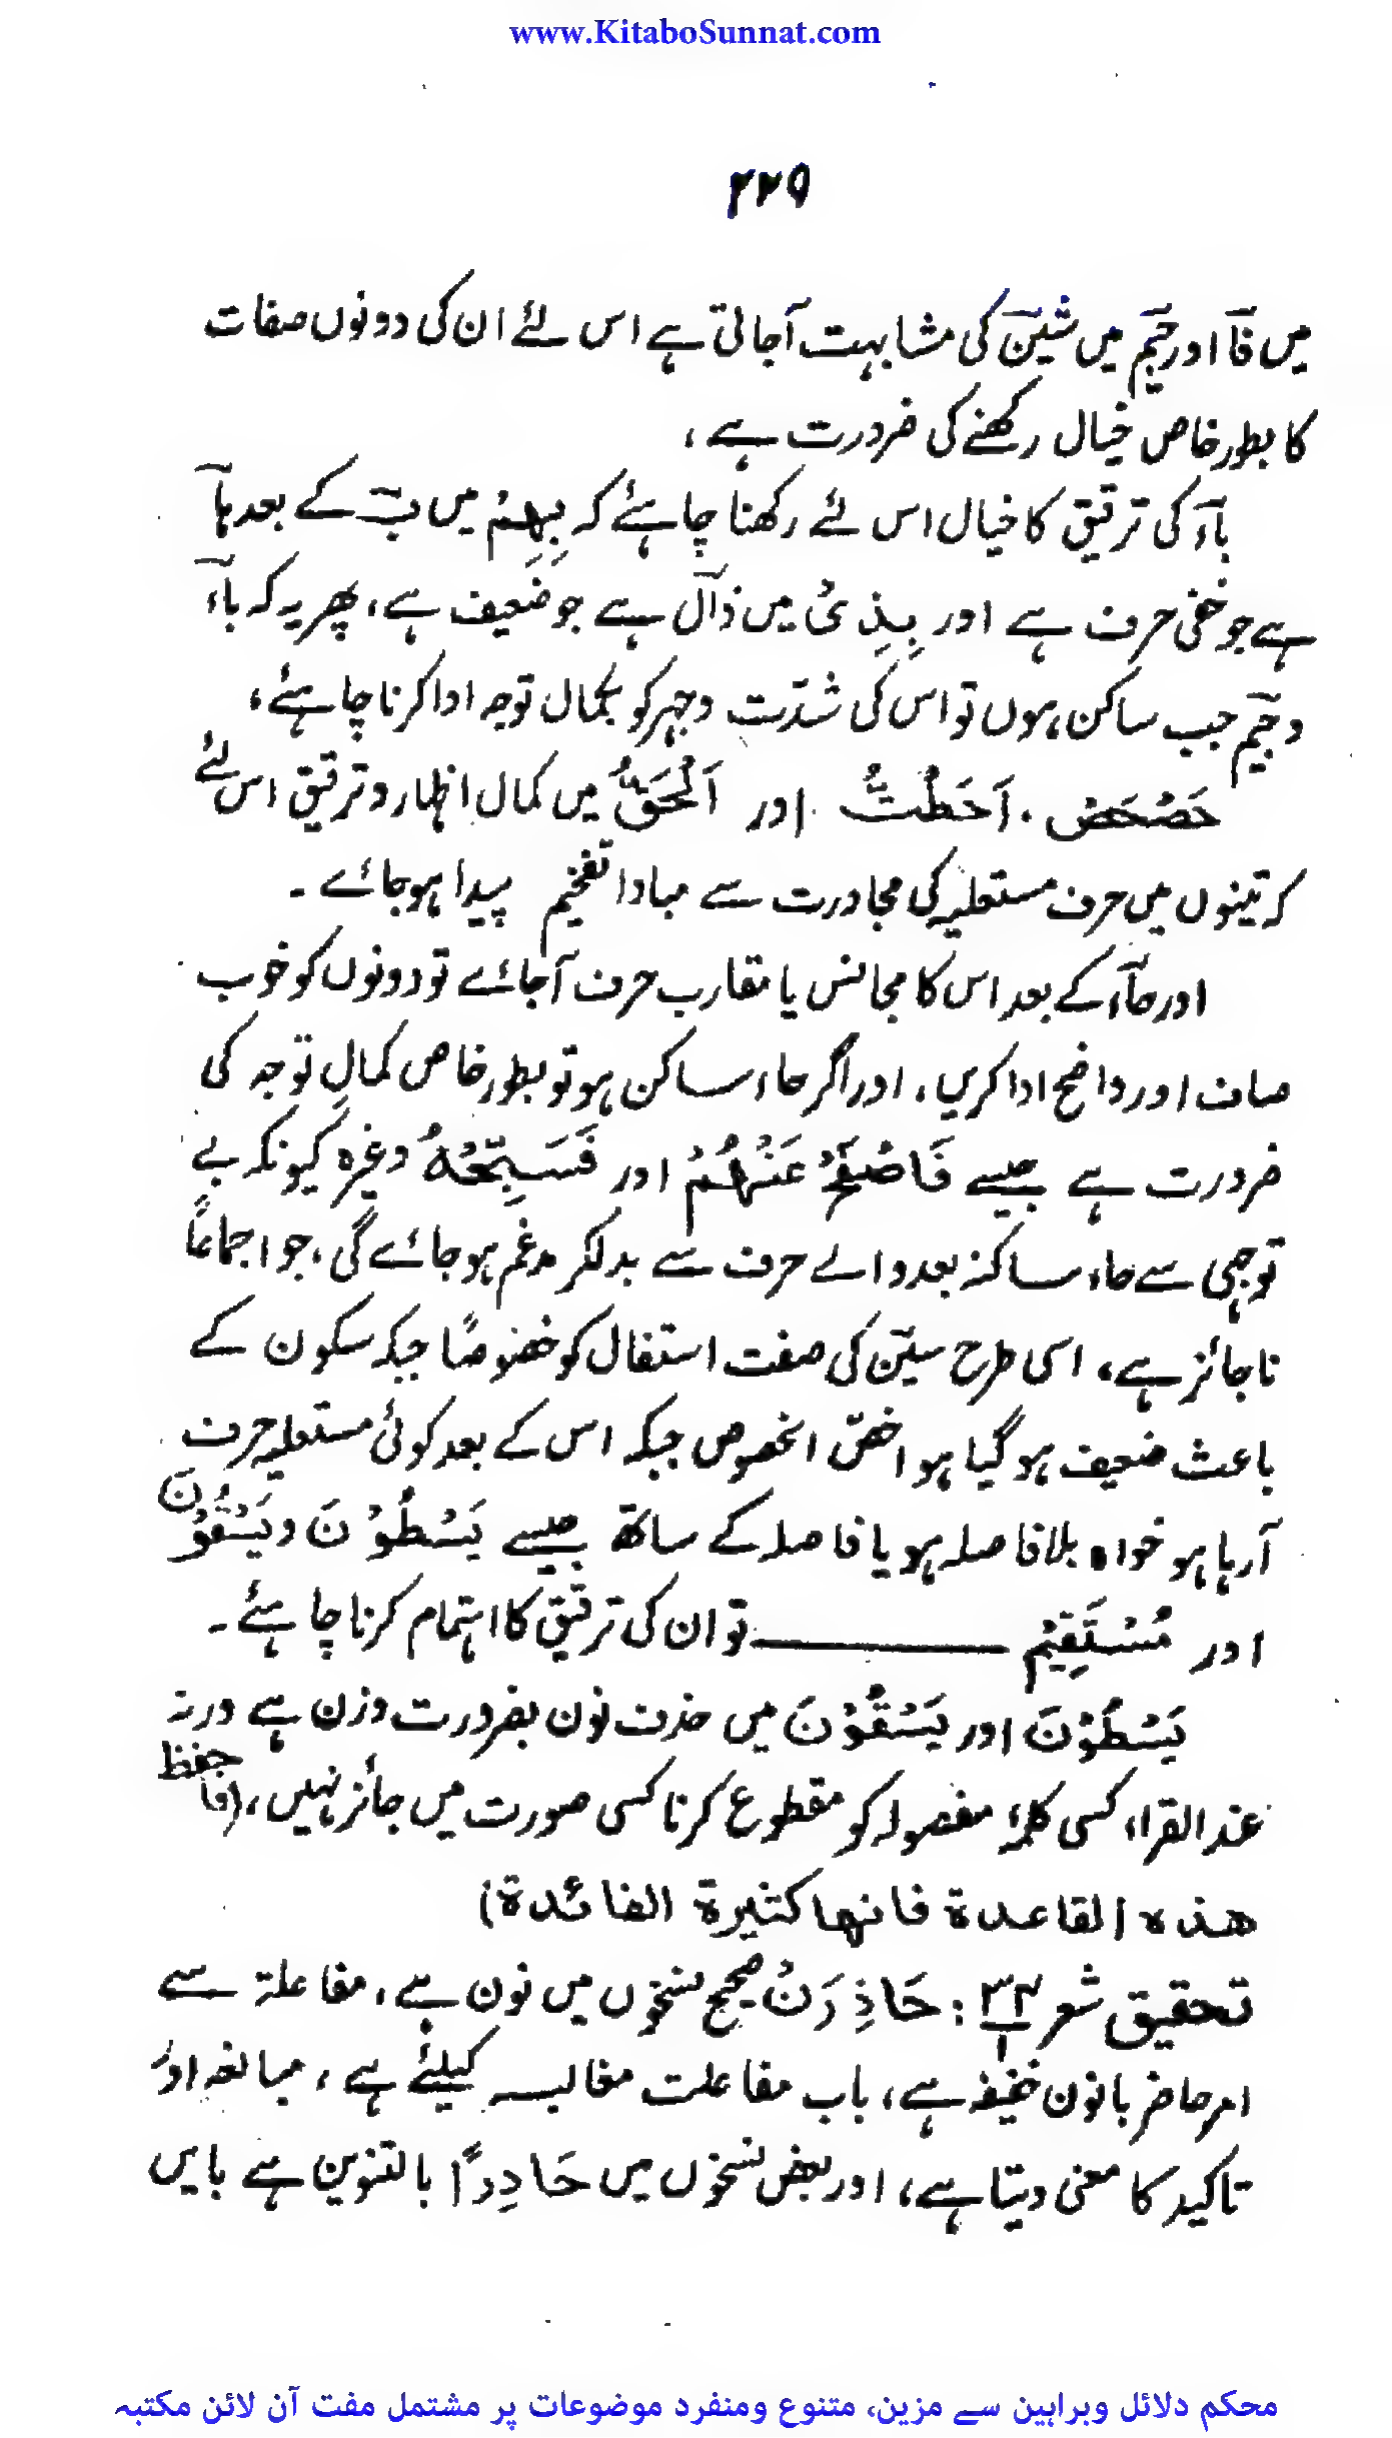 www.KitaboSunnat.com
۲۲۹
میں فآ اور جیم میں شین کی مشابہت آجاتی ہے اس لئے ان کی دونوں صفات
کا بطور خاص خیال رکھنے کی ضرورت ہے،
بآء کی ترقیق کا خیال اس لئے رکھنا چاہئے کہ بِهِمْ میں بؔ کے بعد ہآ
ہے جو خفی حرف ہے اور بِذِیْ میں ذآل ہے جو ضعیف ہے، پھر یہ کہ بآء
و جیم جب ساکن ہوں تو اس کی شدّت و جہر کو بکمال توجہ ادا کرنا چاہئے،
حَصْحَصَ ، اَحَطْتُّ اور اَلْحَقُّ میں کمال اظہار و ترقیق اس لئے
کہ تینوں میں حرف مستعلیہ کی مجاورت سے مبادا تفخیم پیدا ہو جائے ۔
اور حآء کے بعد اس کا مجانس یا متقارب حرف آجائے تو دونوں کو خوب
صاف اور واضح ادا کریں، اور اگر حاء ساکن ہو تو بطور خاص کمالِ توجہ کی
ضرورت ہے جیسے فَاصْفَحْ عَنْهُمْ اور فَسَبِّحْهُ وغیرہ کیونکہ بے
توجہی سے حاء ساکنہ بعد والے حرف سے بدلکر مدغم ہو جائے گی، جو اجماعًا
ناجائز ہے، اسی طرح سین کی صفت استفال کو خصوصًا جبکہ سکون کے
باعث ضعیف ہو گیا ہو اخصّ الخصوص جبکہ اس کے بعد کوئی مستعلیہ حرف
آرہا ہو خواہ بلافاصلہ ہو یا فاصلہ کے ساتھ جیسے یَسْطُوْنَ و یَسْقُوْنَ
اور مُسْتَقِیْم ـــــــــــ تو ان کی ترقیق کا اہتمام کرنا چاہئے ۔
یَسْطُوْنَ اور یَسْقُوْنَ میں حذف نون بضرورت وزن ہے ورنہ
عند القراء کسی کلمۂ مفصولہ کو مقطوع کرنا کسی صورت میں جائز نہیں، (فاحفظ
هذه القاعدة فانها كثيرة الفائدة)
تحقیق شعر ۳۴/۱ : حَاذِرَنْ صحیح نسخوں میں نون ہے، مفاعلۃ سے
امر حاضر بانون خفیفہ ہے، باب مفاعلت مغالبہ کیلئے ہے، مبالغہ اور
تاکید کا معنی دیتا ہے، اور بعض نسخوں میں حَاذِرًا بالتنوین ہے بایں
محکم دلائل وبراہین سے مزین، متنوع ومنفرد موضوعات پر مشتمل مفت آن لائن مکتبہ